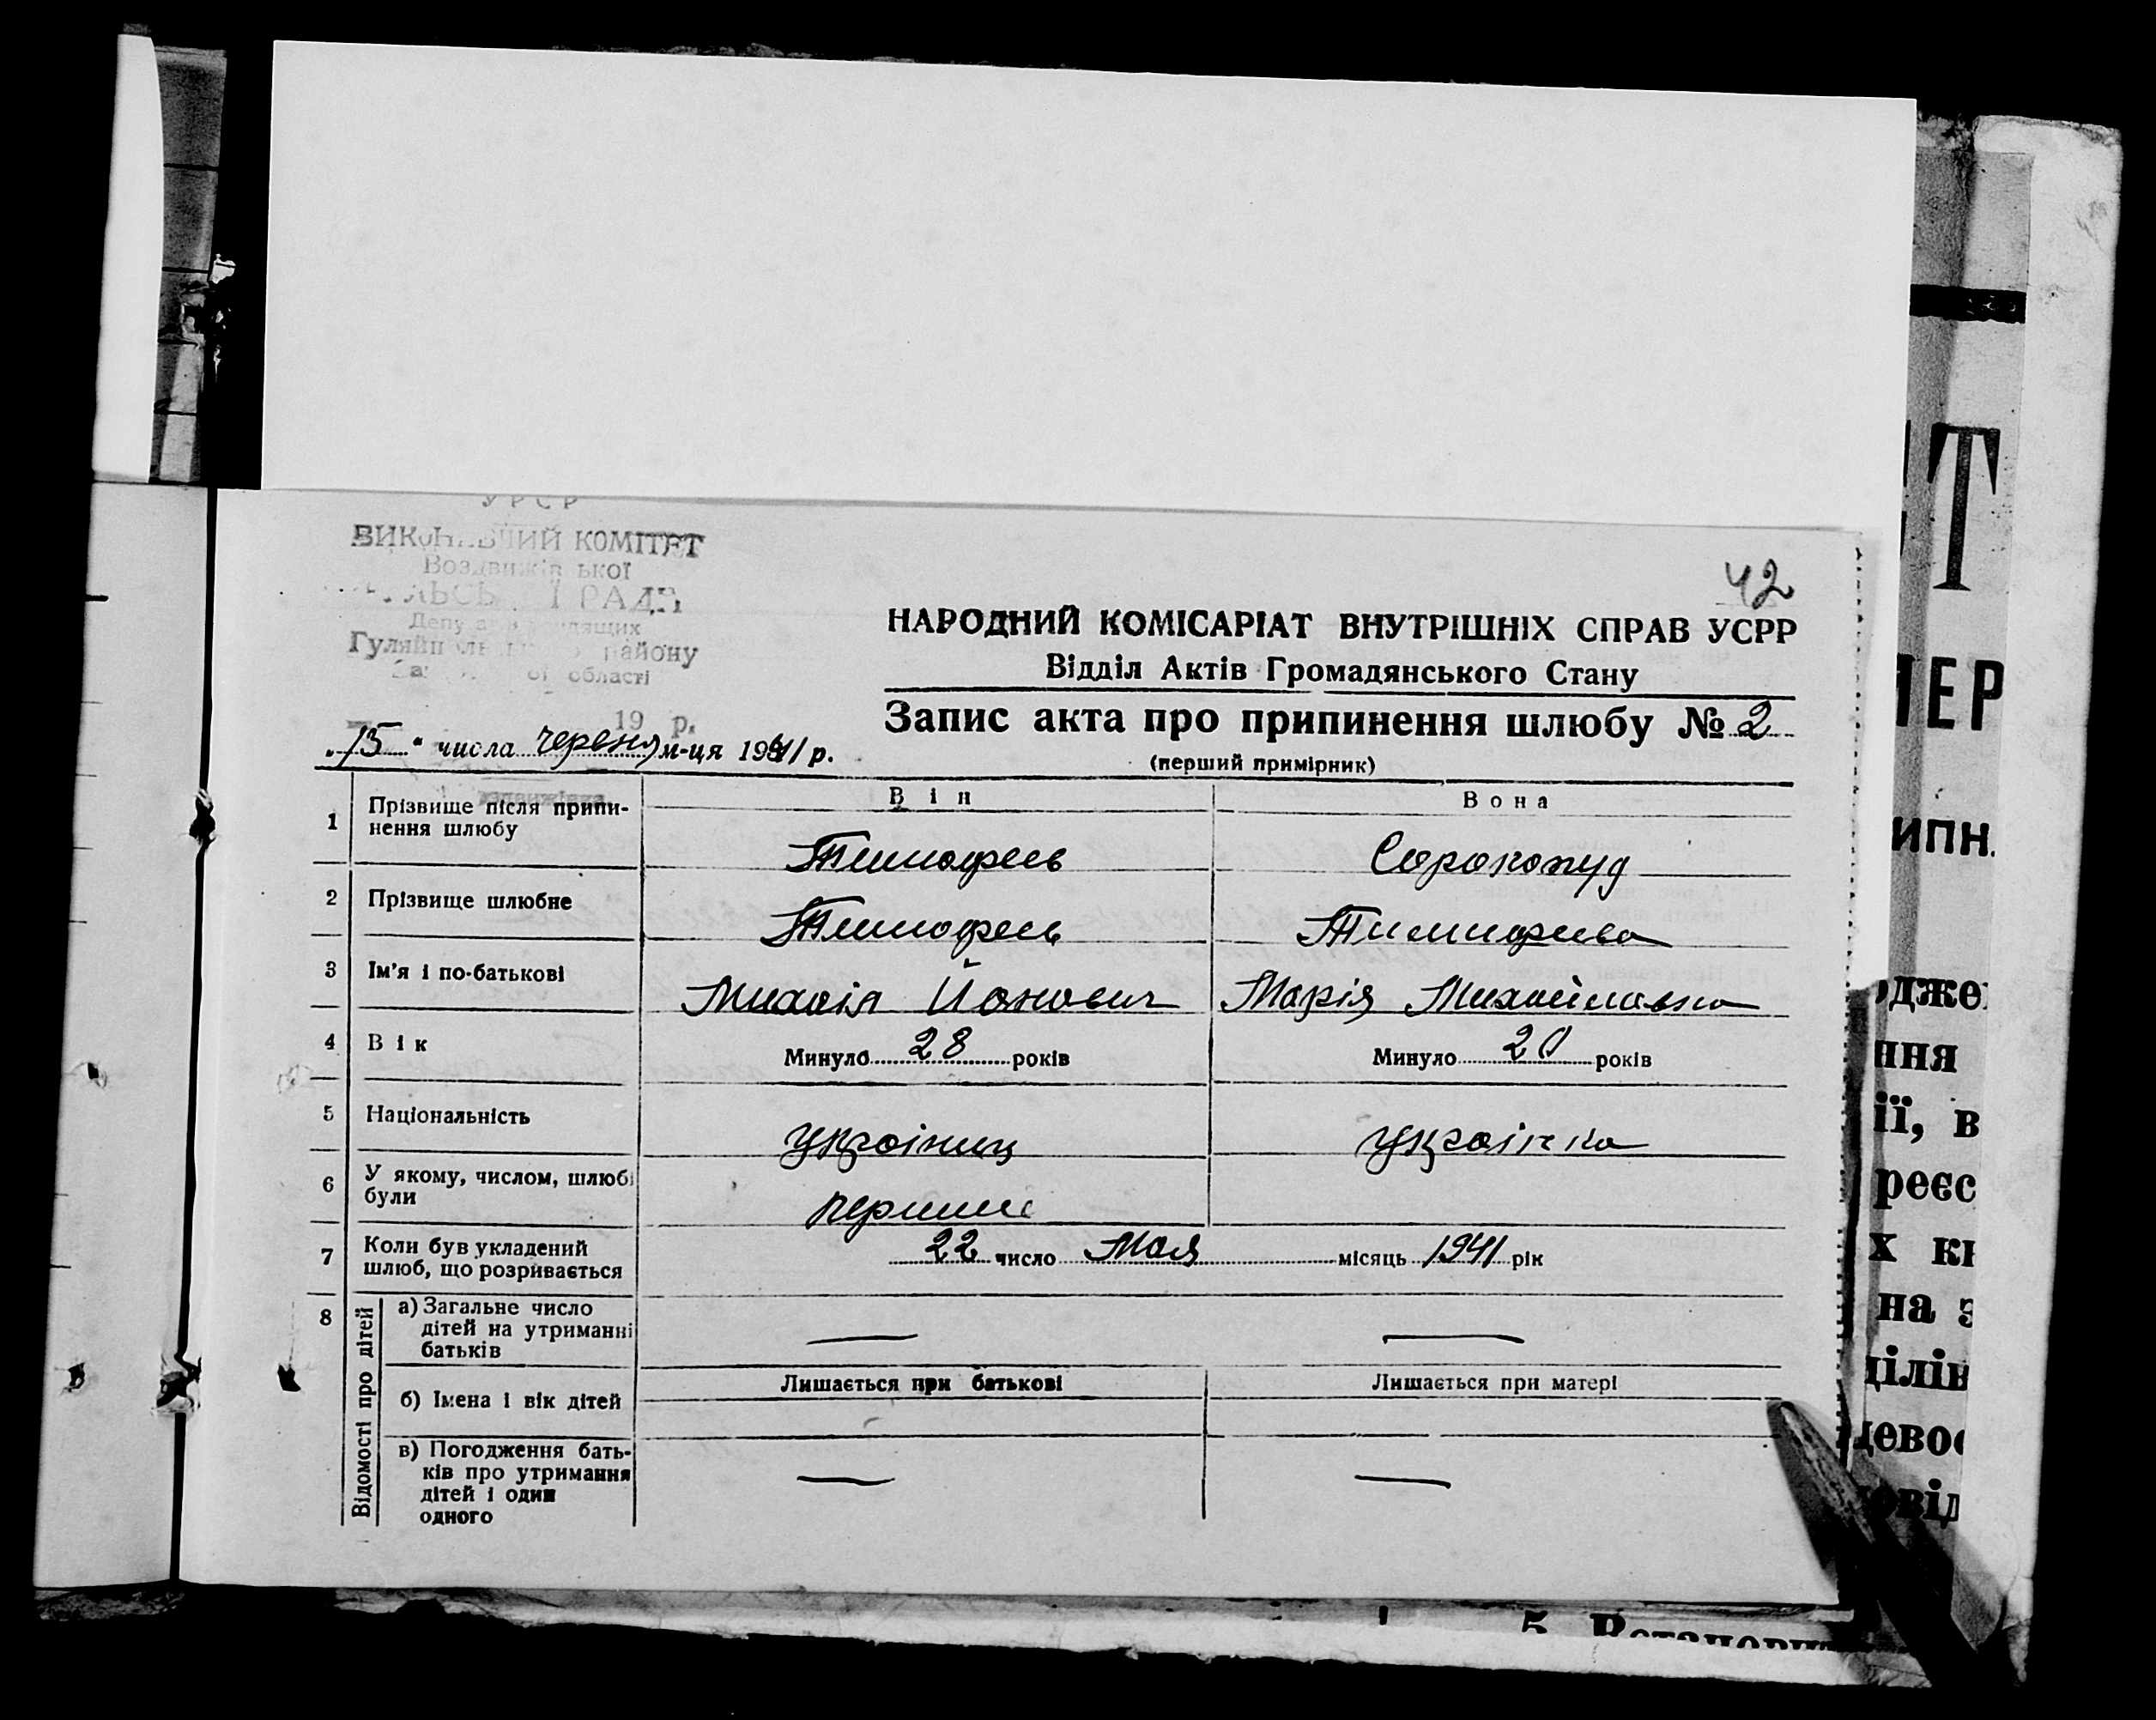 УРСР
ВИКОНАВЧИЙ КОМІТЕТ
Воздвижівської
РАДИ
Гуляйпільського району
області
19 р.
42
НАРОДНИЙ КОМІСАРІАТ ВНУТРІШНІХ СПРАВ УСРР
Відділ Актів Громадянського Стану
Запис акта про припинення шлюбу № 2
(перший примірник)
„15" числа червня м-ця 1941 р.
Він Вона
1 Прізвище після припинення шлюбу Тимофеев Сорокопуд
2 Прізвище шлюбне Тимофеев Тимофеева
3 Ім'я і по-батькові Михаіл Йонович Марія Михайловна
4 Вік Минуло 28 років Минуло 20 років
5 Національність Українец українка
6 У якому, числом, шлюбі були первим
7 Коли був укладений шлюб, що розривається 22 число Мая місяць 1941 рік
8 Відомості про дітей
а) Загальне число дітей на утриманні батьків — —
б) Імена і вік дітей Лишається при батькові Лишається при матері
в) Погодження батьків про утримання дітей і один одного — —
ІТ
МЕР
ипн.
ння
ії, в
реєс
х кн
на з
5. Встанови